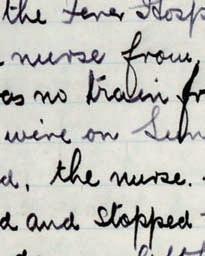 the Fever Hosp
nurse from
as no train fr
wire on Sun
d, the nurse.
d and stopped